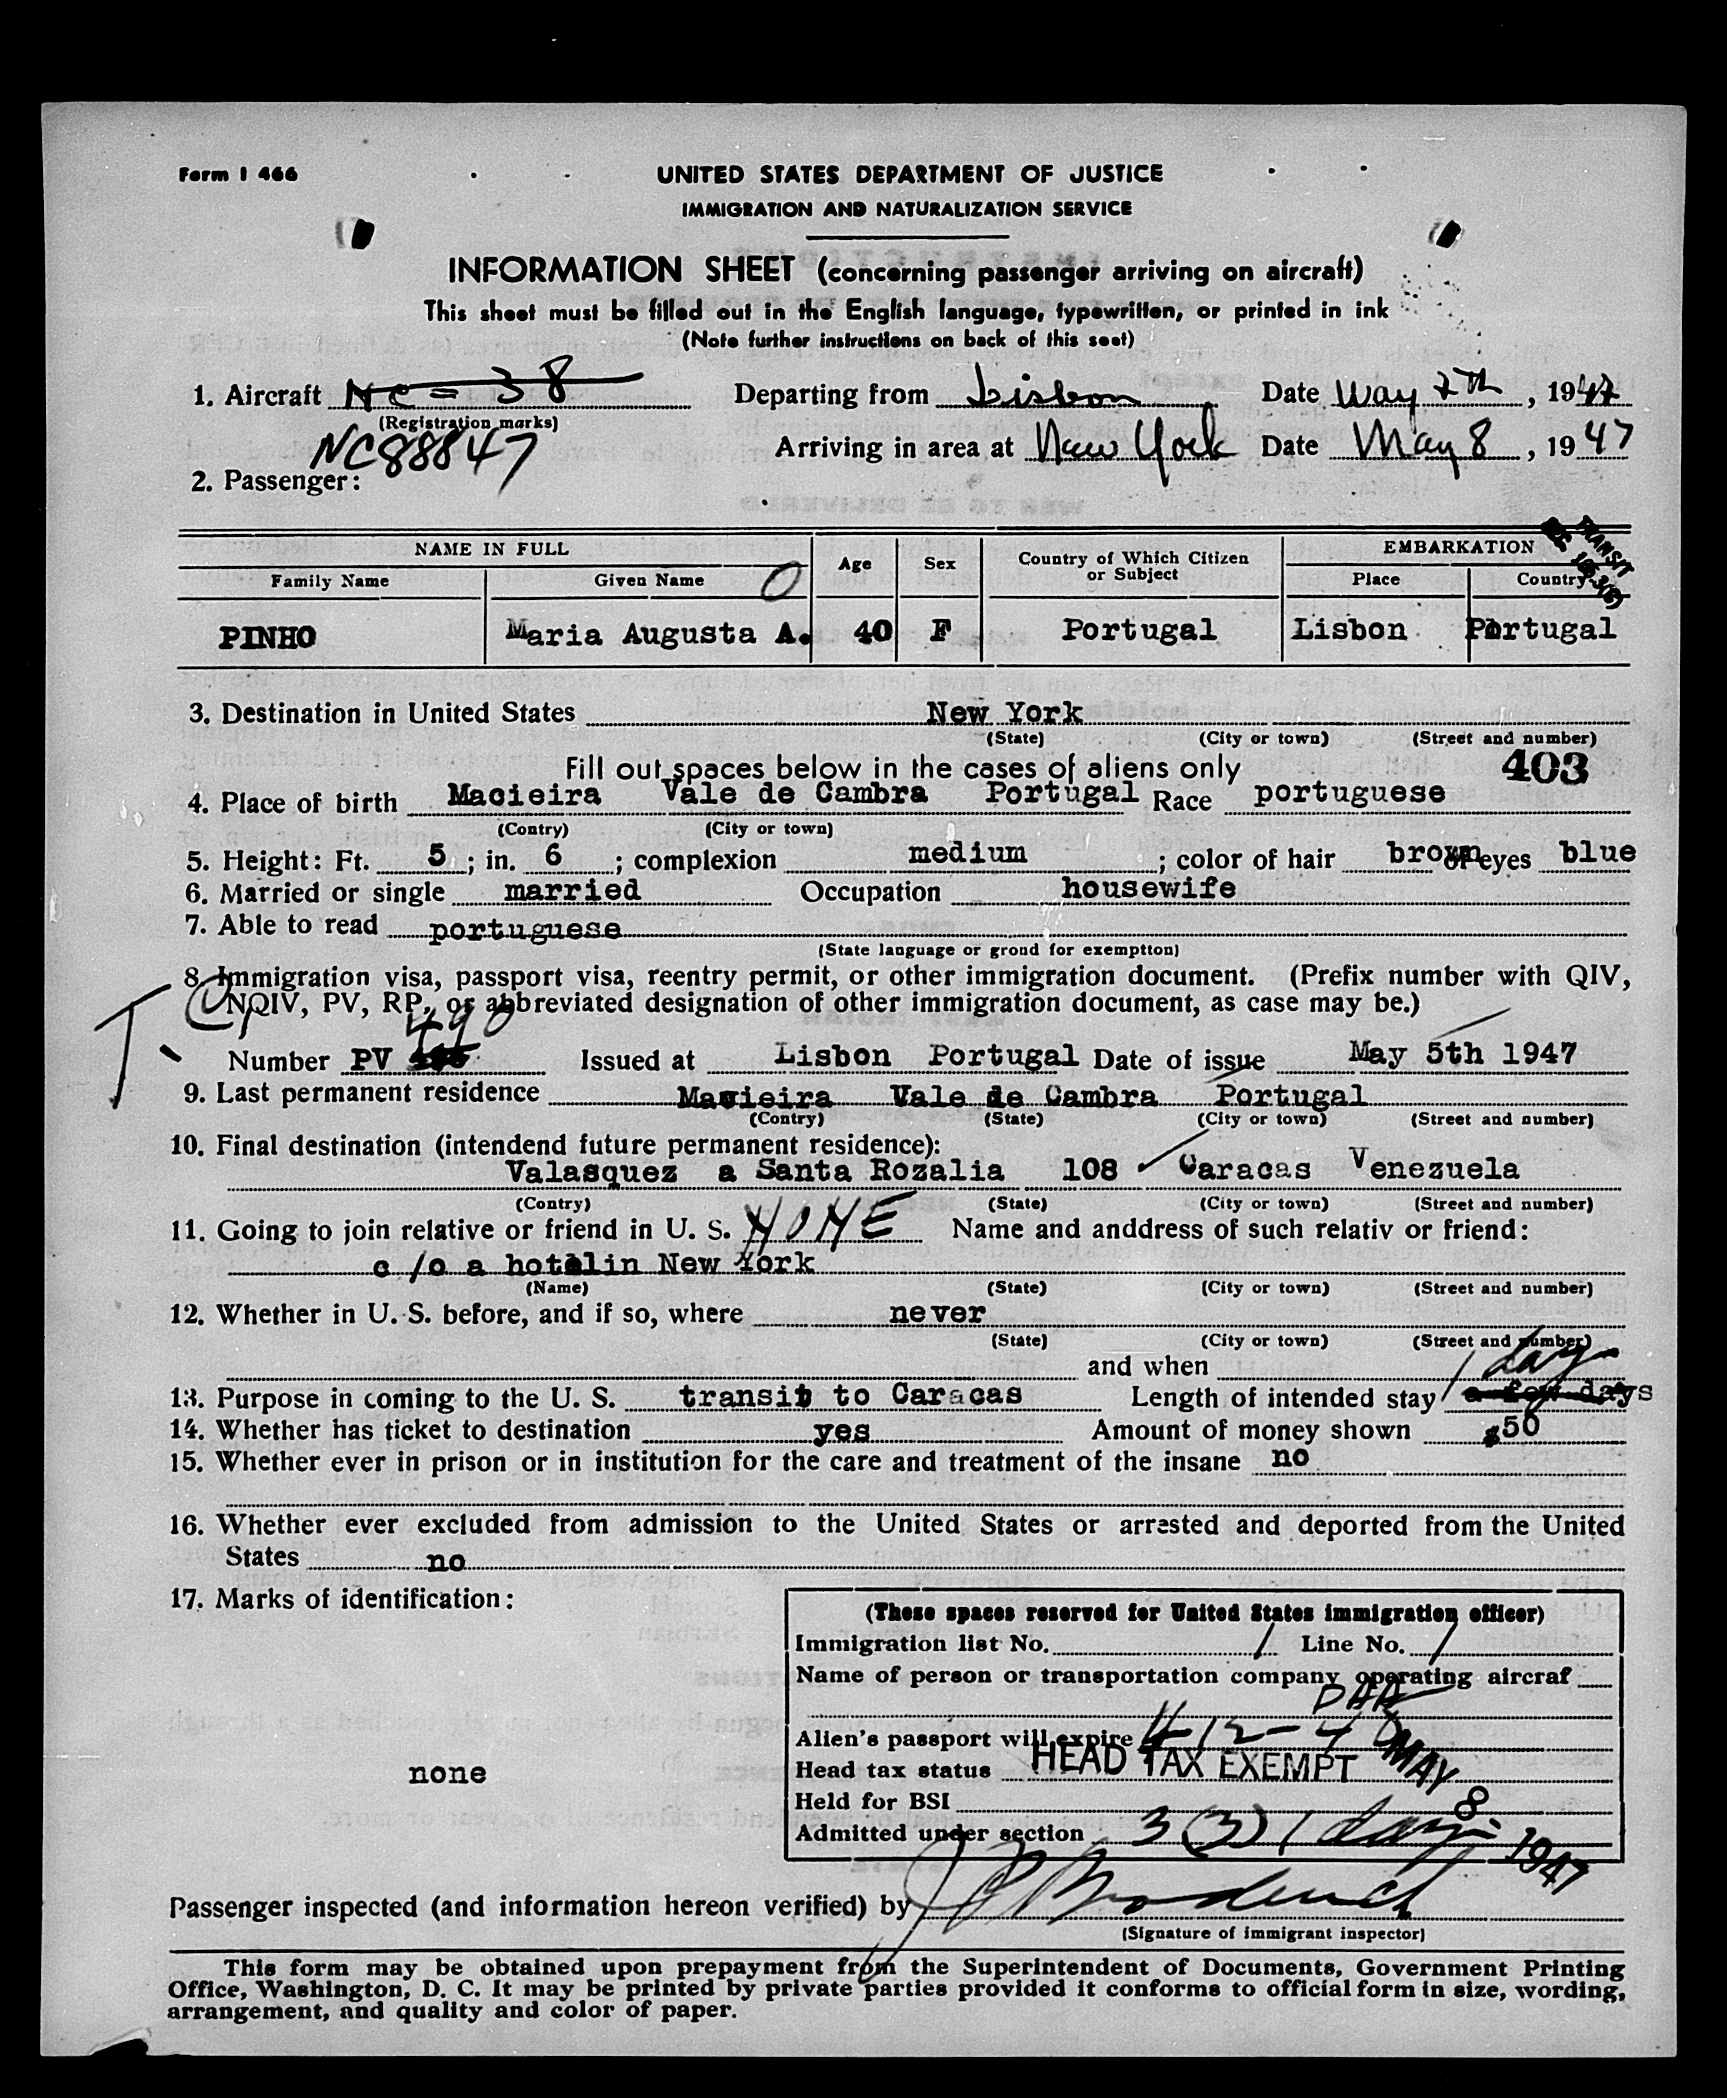 Form I 466
UNITED STATES DEPARTMENT OF JUSTICE
IMMIGRATION AND NATURALIZATION SERVICE
INFORMATION SHEET (concerning passenger arriving on aircraft)
This sheet must be filled out in the English language, typewritten, or printed in ink
(Note further instructions on back of this seet)
1. Aircraft NC - 38 Departing from Lisbon Date May 7th, 1947
(Registration marks)
NC88847 Arriving in area at New York Date May 8, 1947
2. Passenger:
TRANSIT
NAME IN FULL Age Sex Country of Which Citizen or Subject EMBARKATION
Family Name Given Name Place Country
PINHO Maria Augusta A. 40 F Portugal Lisbon Portugal
3. Destination in United States New York
(State) (City or town) (Street and number)
Fill out spaces below in the cases of aliens only 403
4. Place of birth Macieira Vale de Cambra Portugal Race portuguese
(Contry) (City or town)
5. Height: Ft. 5; in. 6; complexion medium; color of hair brown of eyes blue
6. Married or single married Occupation housewife
7. Able to read portuguese
(State language or grond for exemptton)
8. Immigration visa, passport visa, reentry permit, or other immigration document. (Prefix number with QIV,
NQIV, PV, RP, or abbreviated designation of other immigration document, as case may be.)
490
Number PV Issued at Lisbon Portugal Date of issue May 5th 1947
9. Last permanent residence Macieira Vale de Cambra Portugal
(Contry) (State) (City or town) (Street and number)
10. Final destination (intendend future permanent residence):
Valasquez a Santa Rozalia 108 Caracas Venezuela
(Contry) (State) (City or town) (Street and number)
11. Going to join relative or friend in U. S. NONE Name and anddress of such relativ or friend:
c/o a hotelin New York
(Name) (State) (City or town) (Street and number)
12. Whether in U. S. before, and if so, where never
(State) (City or town) (Street and number)
and when
1 day
13. Purpose in coming to the U. S. transit to Caracas Length of intended stay a few days
14. Whether has ticket to destination yes Amount of money shown $50
15. Whether ever in prison or in institution for the care and treatment of the insane no
16. Whether ever excluded from admission to the United States or arrested and deported from the United
States no
17. Marks of identification:
none
(These spaces reserved for United States immigration officer)
Immigration list No. 1 Line No. 1
Name of person or transportation company operating aircraf
PAA
Alien's passport will expire
Head tax status HEAD TAX EXEMPT
MAY 8 1947
Held for BSI
Admitted under section 3(3) 1 day
Passenger inspected (and information hereon verified) by
(Signature of immigrant inspector)
This form may be obtained upon prepayment from the Superintendent of Documents, Government Printing
Office, Washington, D. C. It may be printed by private parties provided it conforms to official form in size, wording,
arrangement, and quality and color of paper.